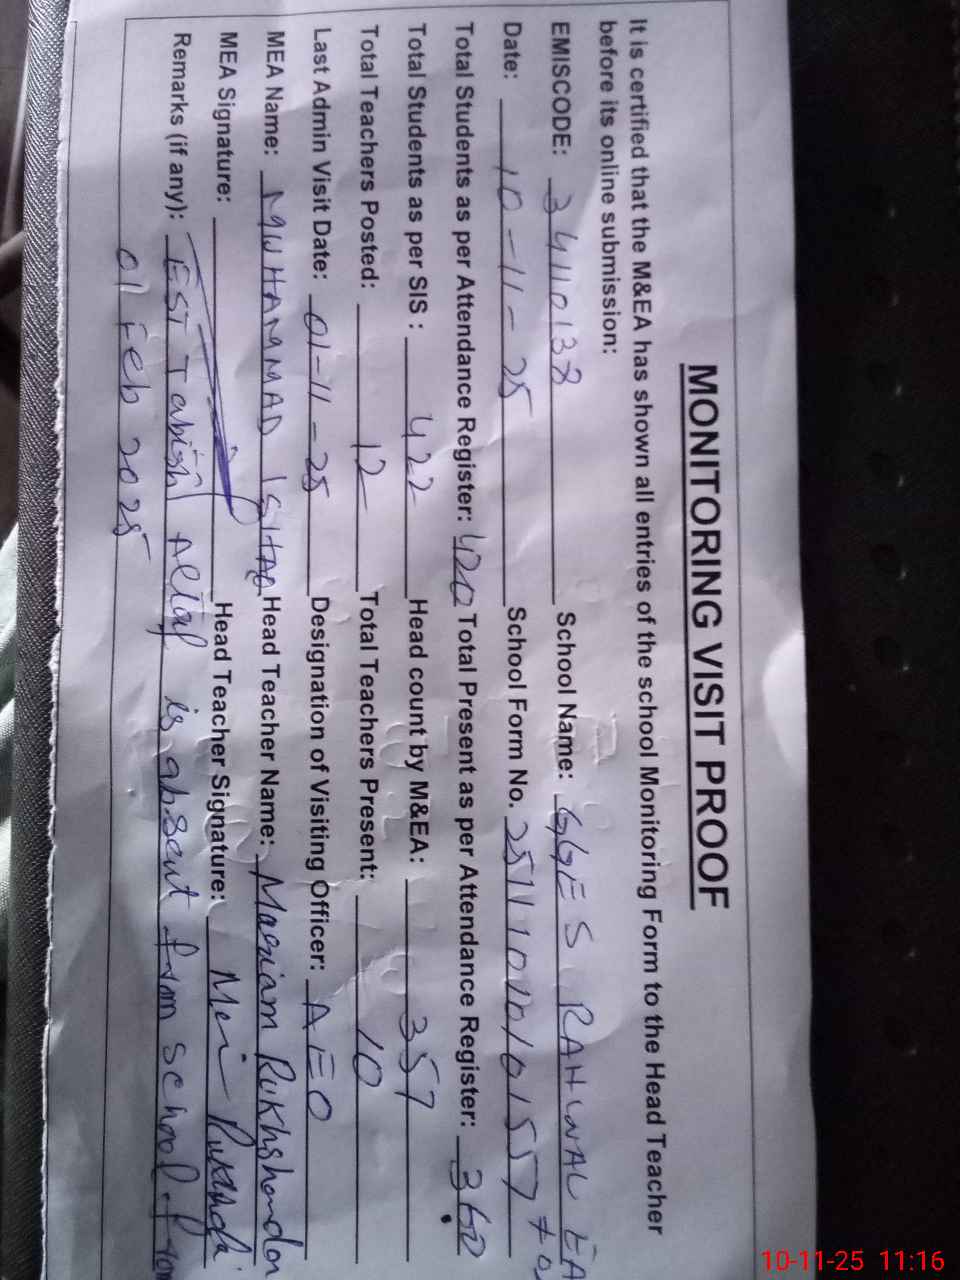 MONITORING VISIT PROOF
It is certified that the M&EA has shown all entries of the school Monitoring Form to the Head Teacher
before its online submission:
EMISCODE: 34110138 School Name: GGES RAHWAL
Date: 10-11-25 School Form No. 2511101010157
Total Students as per Attendance Register: 420 Total Present as per Attendance Register: 360
Total Students as per SIS : 422 Head count by M&EA: 357
Total Teachers Posted: 12 Total Teachers Present: 10
Last Admin Visit Date: 01-11-25 Designation of Visiting Officer: AEO
MEA Name: MUHAMMAD ISHAQ Head Teacher Name: Marriam Rukhshanda
MEA Signature: Head Teacher Signature:
Remarks (if any): EST is absent from school from
01 Feb 2025
10-11-25 11:16